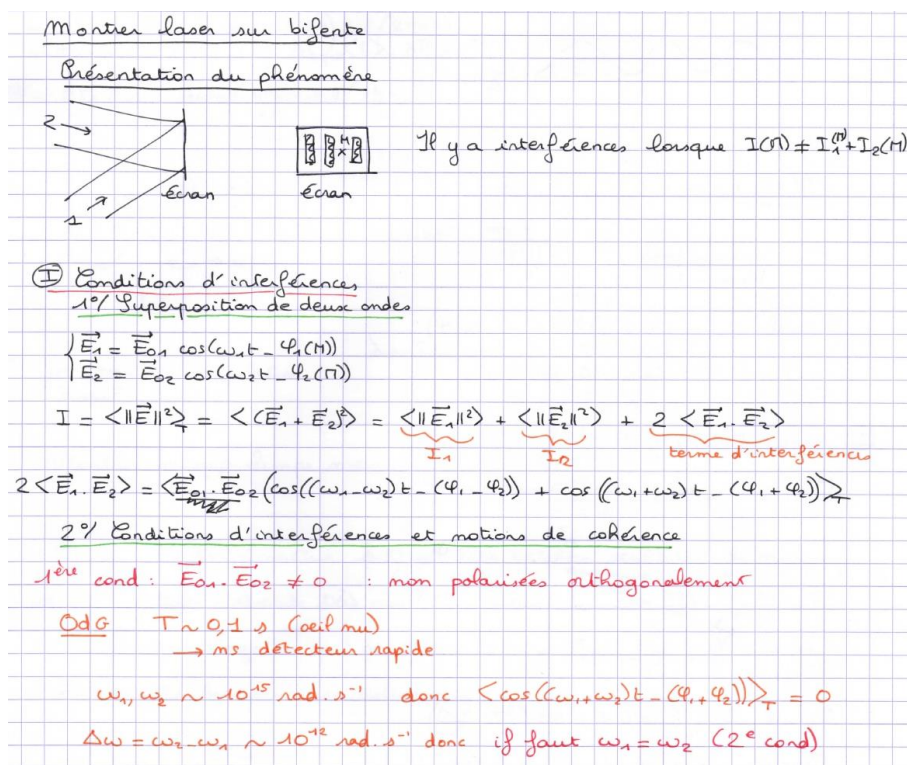 Montrer laser sur bifente
Présentation du phénomène
2
1
écran
M
×
écran
Il y a interférences lorsque I(M) ≠ I₁(M) + I₂(M)
Ⅰ Conditions d'interférences
1°/ Superposition de deux ondes
{ E⃗₁ = E⃗₀₁ cos(ω₁t - φ₁(M))
{ E⃗₂ = E⃗₀₂ cos(ω₂t - φ₂(M))
I = <||E⃗||²>_T = <(E⃗₁ + E⃗₂)²> = <||E⃗₁||²> + <||E⃗₂||²> + 2 <E⃗₁.E⃗₂>
I₁ I₂ terme d'interférences
2 <E⃗₁.E⃗₂> = <E⃗₀₁.E⃗₀₂ (cos((ω₁-ω₂)t - (φ₁-φ₂)) + cos((ω₁+ω₂)t - (φ₁+φ₂))>_T
2°/ Conditions d'interférences et notions de cohérence
1ère cond : E⃗₀₁.E⃗₀₂ ≠ 0 : non polarisées orthogonalement
OdG T ~ 0,1 s (oeil nu)
→ ms détecteur rapide
ω₁, ω₂ ~ 10¹⁵ rad.s⁻¹ donc <cos((ω₁+ω₂)t - (φ₁+φ₂))>_T = 0
Δω = ω₂-ω₁ ~ 10¹² rad.s⁻¹ donc if faut ω₁ = ω₂ (2e cond)